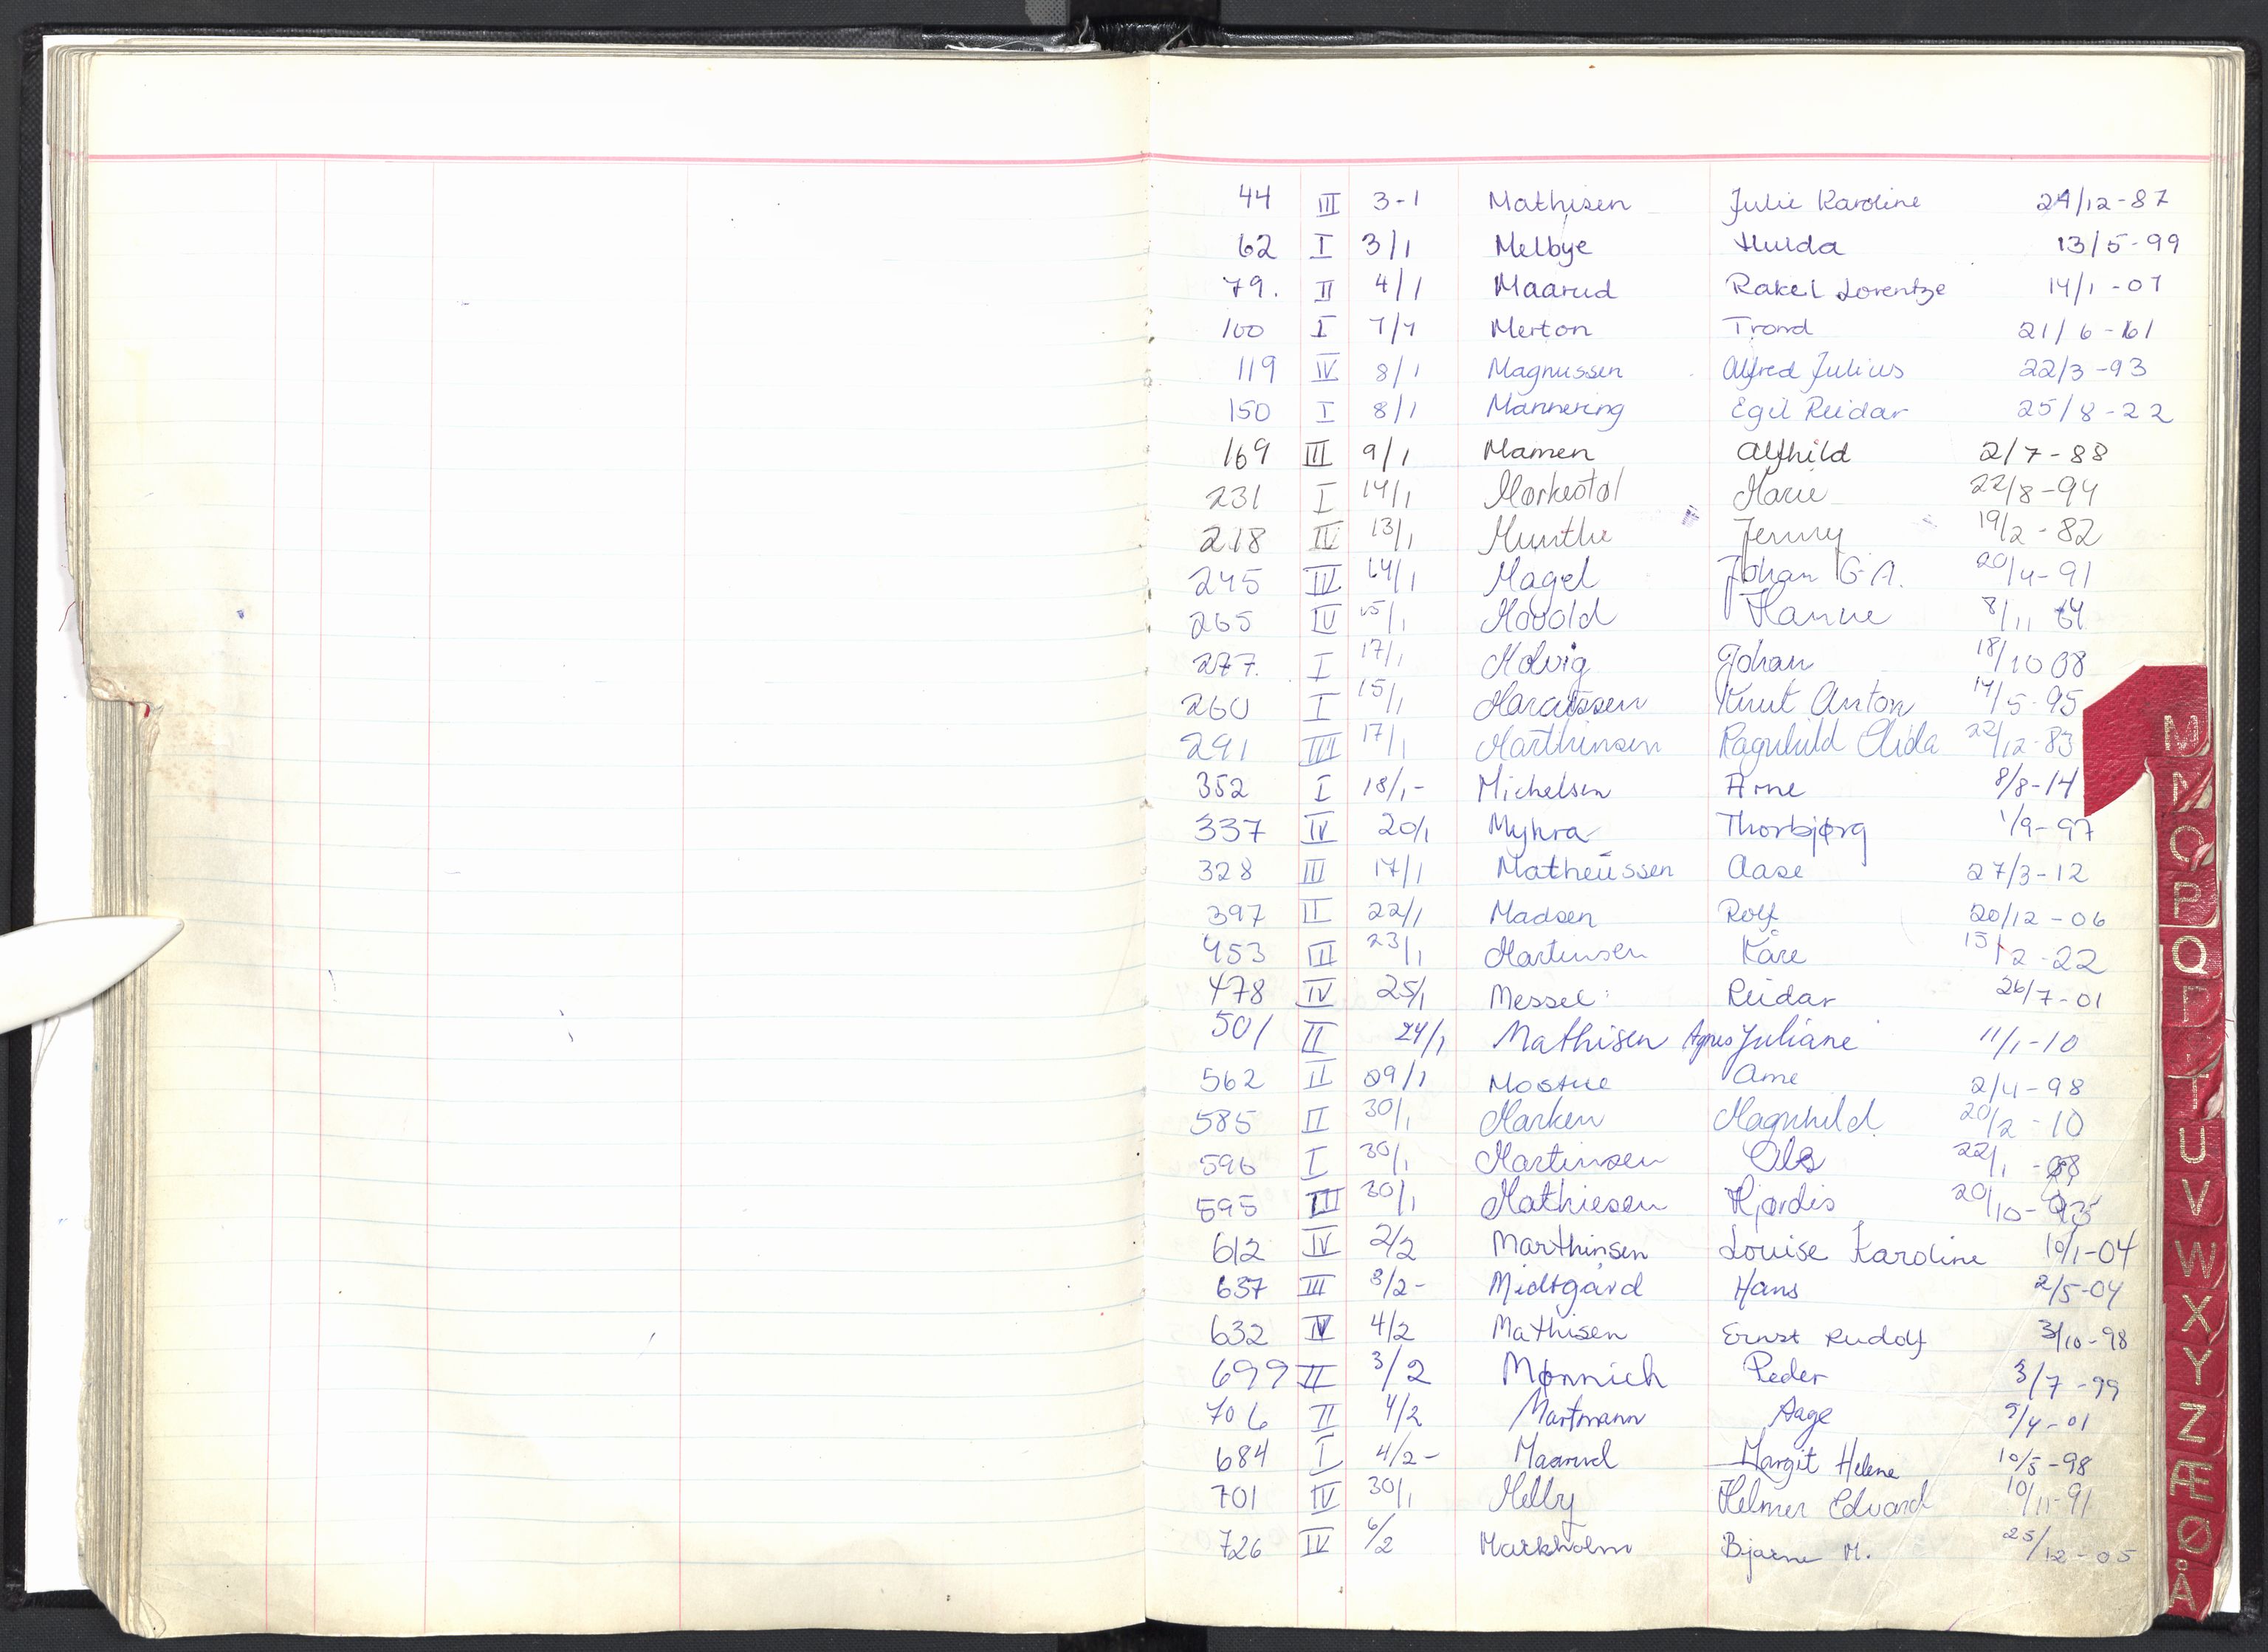 44 III 3-1 Mathisen Julie Karoline 24/12-87
62 I 3/1 Melbye Hulda 13/5-99
79. II 4/1 Maarud Rakel Lorentze 14/1-07
100 I 7/1 Merton Trond 21/6-61
119 IV 8/1 Magnussen Alfred Julius 22/3-93
150 I 8/1 Mannering Egil Reidar 25/8-22
169 III 9/1 Mamen Alfhild 2/7-88
231 I 14/1 Mørkestøl Marie 22/8-94
218 IV 13/1 Munthe Jenny 19/2-82
245 IV 14/1 Magel Johan G.A. 20/4-91
265 IV 15/1 Movold Hanne 8/11 64
277. I 17/1 Molvig Johan 18/10 08
260 I 15/1 Knut Anton 14/5-95
291 III 17/1 Marthinsen Ragnhild Elida 22/12-83
352 I 18/1- Michelsen Arne 8/8-14
337 IV 20/1 Myhra Thorbjørg 1/9-97
328 III 17/1 Matheussen Aase 27/3-12
397 II 22/1 Madsen Rolf 20/12-06
453 III 23/1 Martinsen Kåre 15/2-22
478 IV 25/1 Messel Reidar 26/7-01
501 II 24/1 Mathisen Agnes Juliane 11/1-10
562 II 29/1 Mostue Arne 2/4-98
585 II 30/1 Marken Magnhild 20/2-10
596 I 30/1 Martinsen 22/1
595 III 30/1 Mathiesen Hjørdis 20/10-
612 IV 2/2 Marthinsen Louise Karoline 10/1-04
637 III 3/2- Midtgård Hans 2/5-04
632 IV 4/2 Mathisen Ernst Rudolf 3/10-98
699 II 3/2 Mønnich Peder 3/7-99
706 II 4/2 Martmann Aage 9/4-01
684 I 4/2- Maarud Margit Helene 10/5-98
701 IV 30/1 Melby Helmer Edvard 10/11-91
726 IV 6/2 Markholm Bjarne M. 25/12-05
M
N
O
P
Q
R
T
U
V
W
X
Y
Z
Æ
Ø
Å